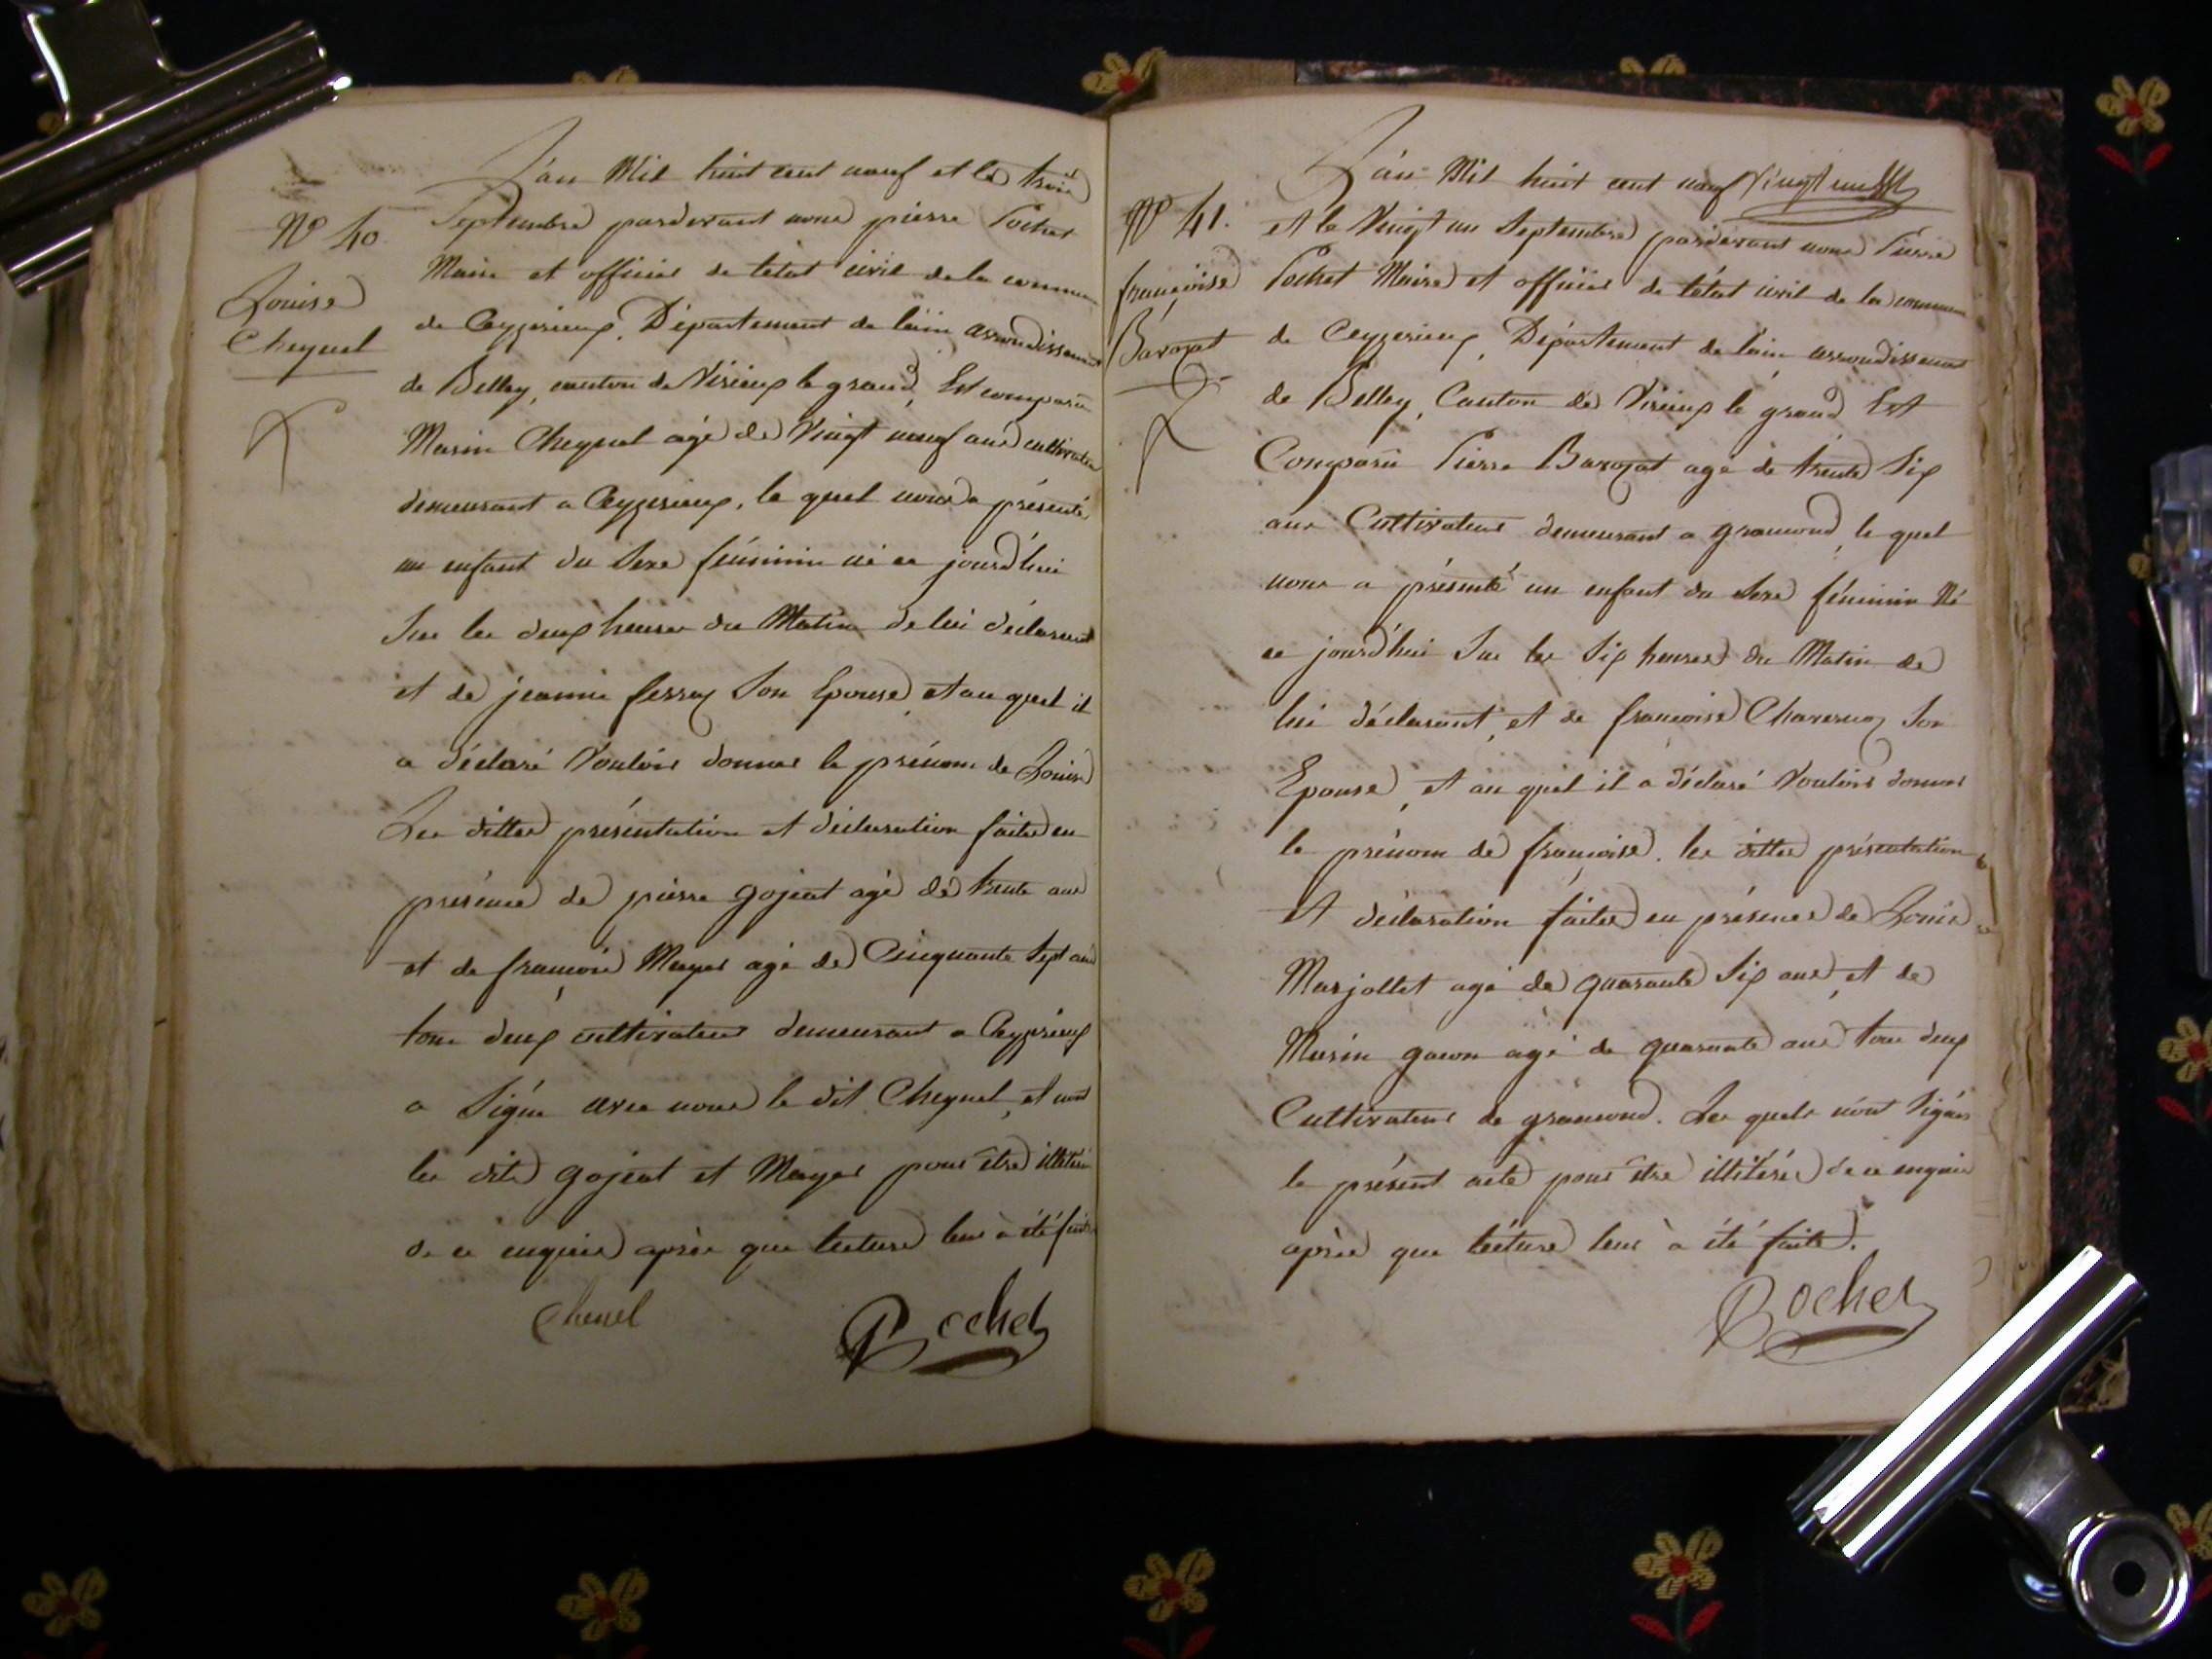 N° 40
Louise
Cheynel
L'an Mil huit cent neuf et le trois
Septembre pardevant nous pierre Pochet
Maire et officier de l'état civil de la commune
de Ceyzerieux, Département de l'ain arrondissement
de Belley, canton de Virieux le grand, Est comparu
Marin Cheynel agé de Vingt neuf ans cultivateur
demeurant a Ceyzerieux, le quel nous a présenté
un enfant du Sexe féminin né ce jourd'hui
Sur les deux heures du Matin de lui déclarant
et de jeannie ferray Son Epouse, et au quel il
a déclaré Vouloir donner le prénom de Louise
Les dittes présentation et déclaration faites en
présence de pierre gojeat agé de trente ans
et de françois Mayer agé de Cinquante Sept ans
tous deux cultivateurs demeurant a Ceyzrieux
a Signé avec nous le dit Cheynel, et non
les dits gojeat et Mayer pour être illitéré
de ce enquis après que lecture leur à été faite
Chenel
Pochet
N° 41.
françoise
Barozat
L'an Mil huit cent neuf
et le Vingt un Septembre pardevant nous Pierre
Pochet Maire et officier de l'état civil de la commune
de Ceyzerieux, Département de l'ain, arrondissement
de Belley, Canton de Virieux le grand Est
Comparu Pierre Barozat agé de trente Six
ans Cultivateur demeurant a gramond, le quel
nous a présenté un enfant du Sexe féminin Né
ce jourd'hui Sur les Six heures du Matin de
lui déclarant, et de françoise Son
Epouse, et au quel il a déclaré Vouloir donner
le prénom de françoise. les dittes présentation
et déclaration faites en présence de Louis
Marjollet agé de quarante Six ans, et de
Marin gacon agé de quarante ans tous deux
Cultivateurs de gramond. Les quels n'ont Signés
le présent acte pour être illitéré de ce enquis
après que lecture leur à été faite.
Pochet